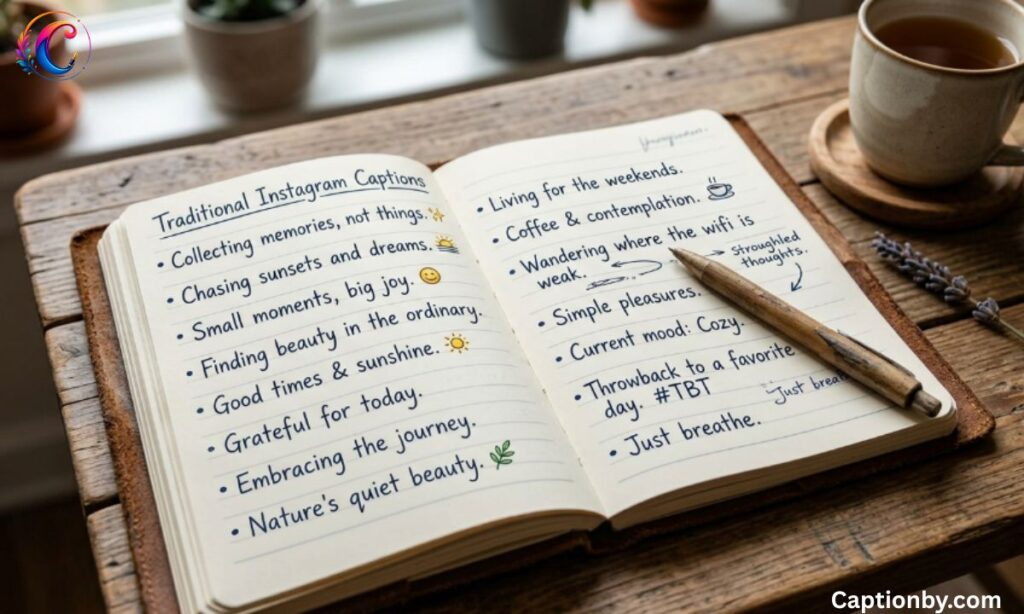 Traditional Instagram Captions
• Collecting memories, not things.
• Chasing sunsets and dreams.
• Small moments, big joy.
• Finding beauty in the ordinary.
• Good times & sunshine.
• Grateful for today.
• Embracing the journey.
• Nature's quiet beauty.
• Living for the weekends.
• Coffee & contemplation.
• Wandering where the wifi is
weak.
Stroughled
thoughts.
• Simple pleasures.
• Current mood: Cozy.
• Throwback to a favorite
day. #TBT
Just brea
• Just breathe.
Captionby.com